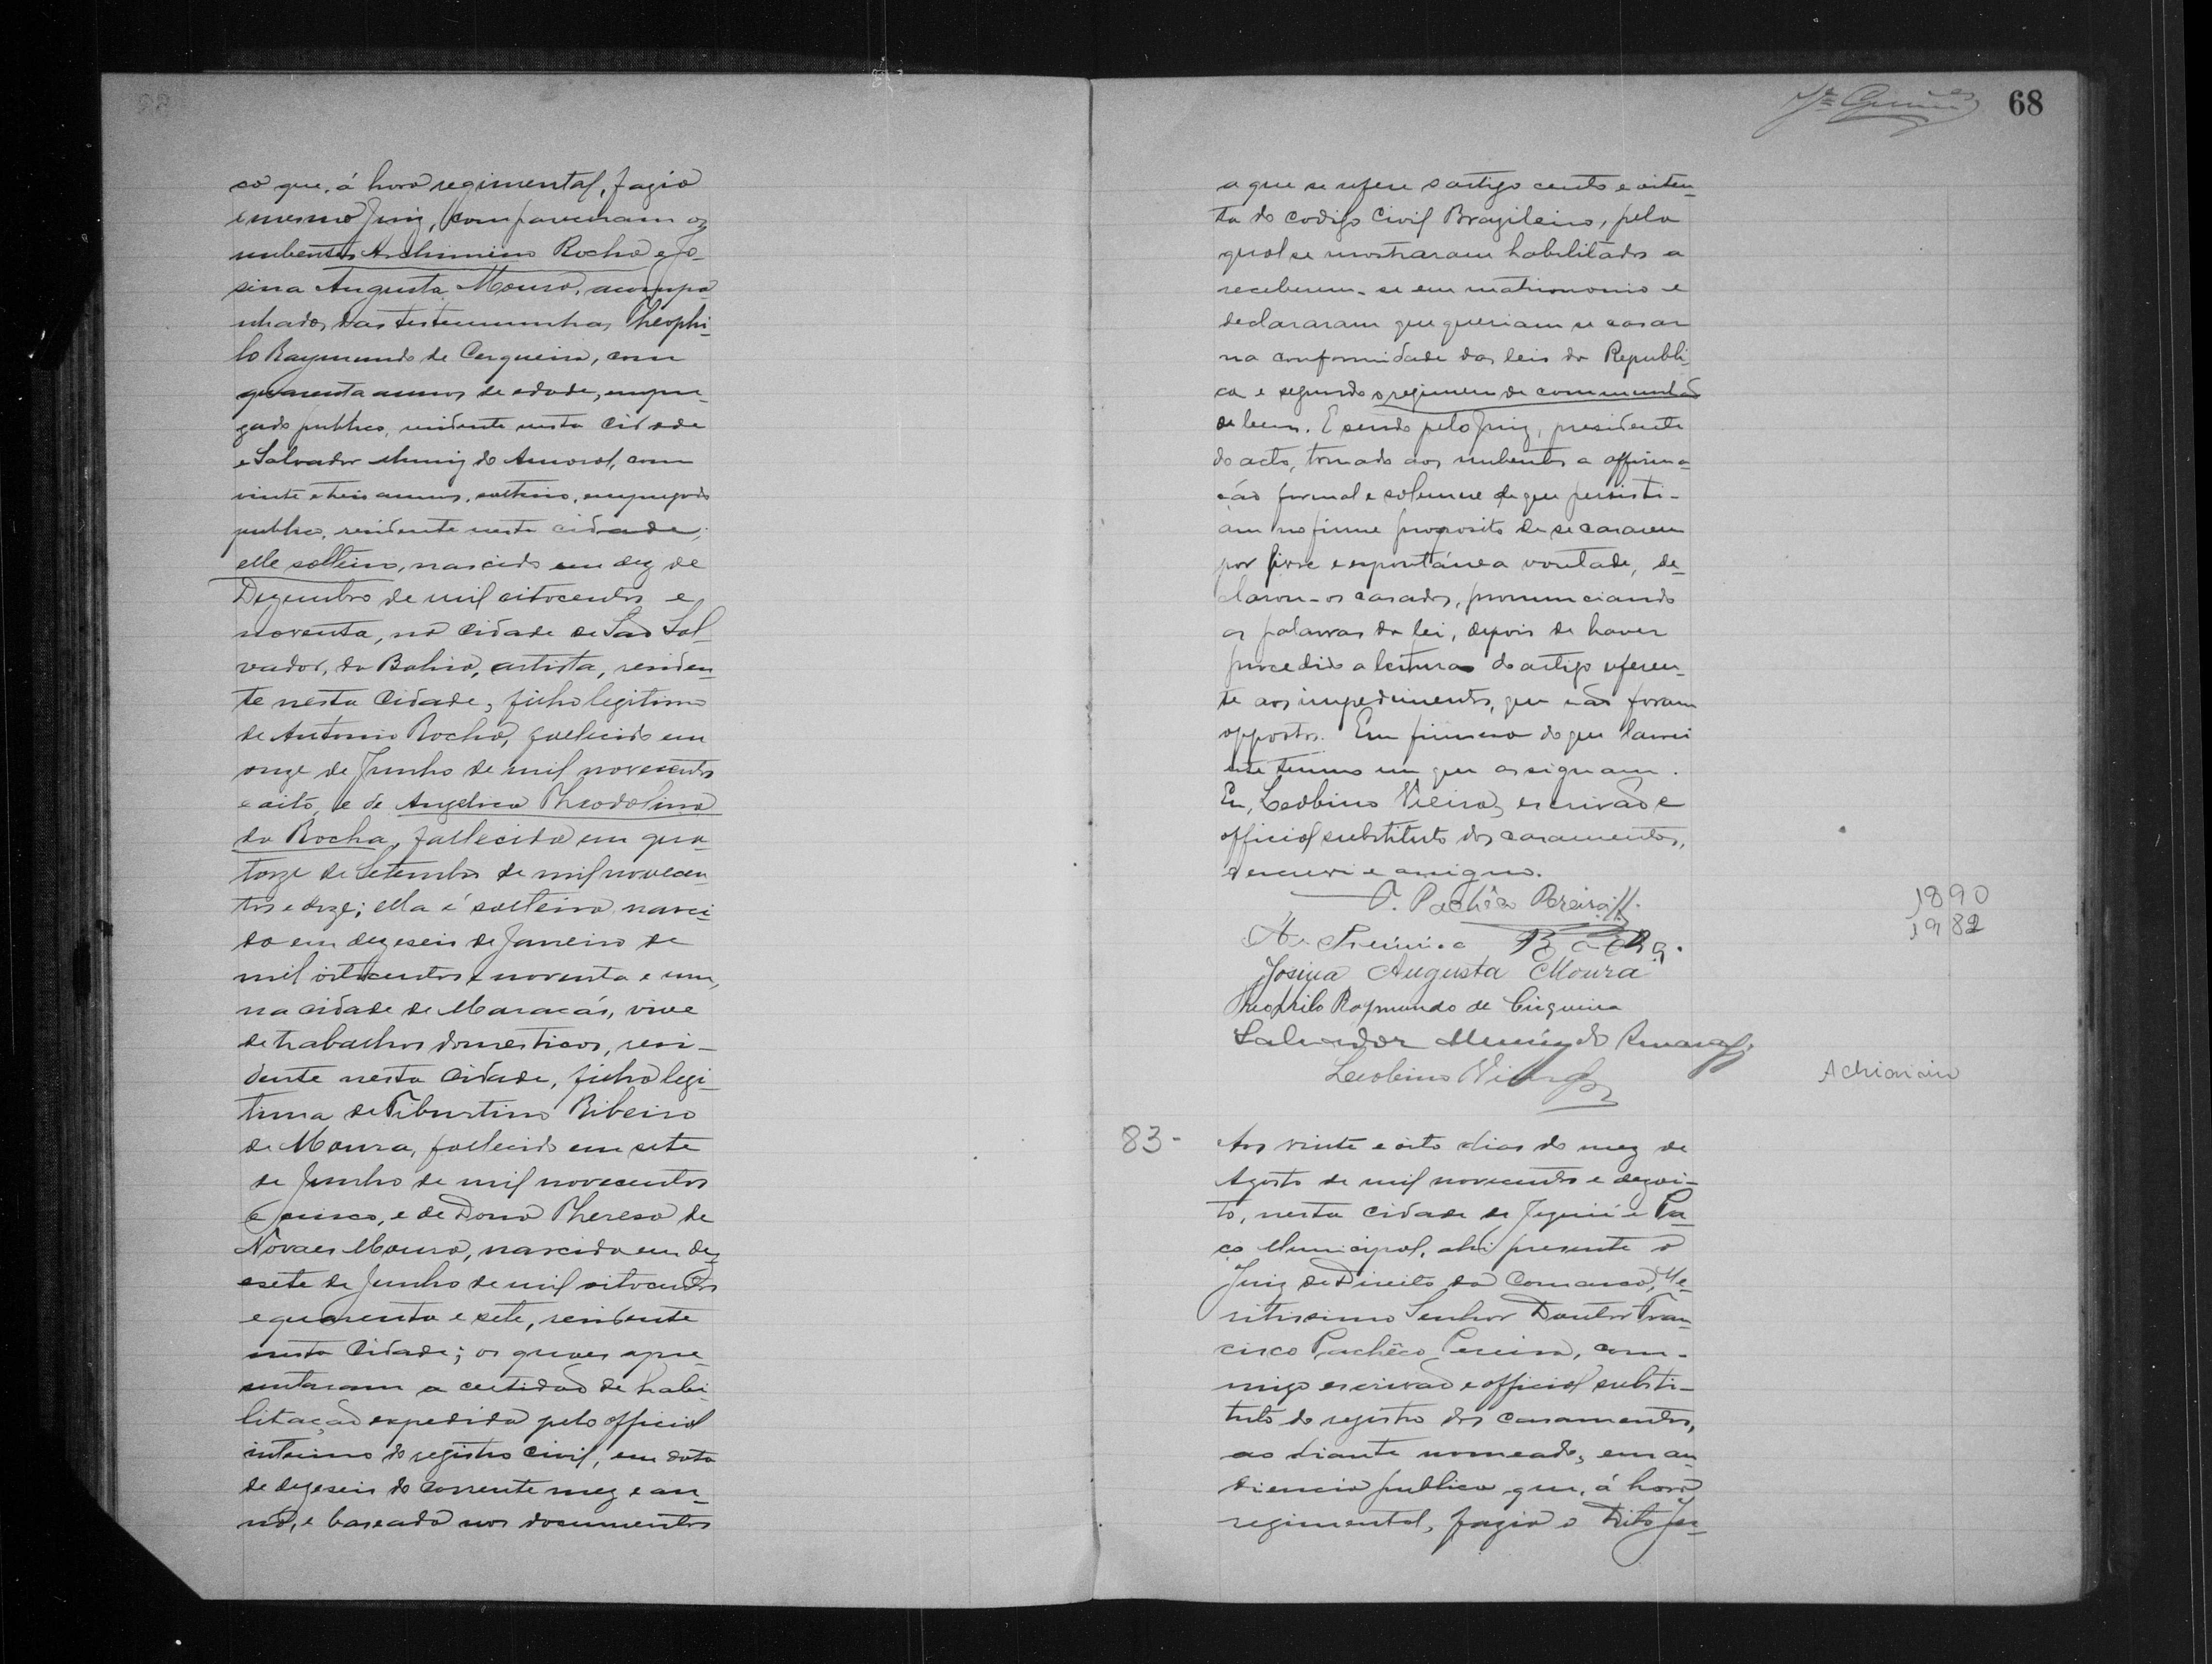 co que, á hora regimental, fazia
o mesmo Juiz, compareceram os
nubentes Archimino Rocha e Jo-
sina Augusta Moura, acompa-
nhados das testemunhas Theophi-
lo Raymundo de Cerqueira, com
quarenta annos de edade, empre-
gado publico, residente nesta Cidade
e Salvador Muniz do Amaral, com
vinte e seis annos, solteiro, empregado
publico, residente nesta cidade;
elle solteiro, nascido em dez de
Dezembro de mil oitocentos e
noventa, na Cidade de São Sal-
vador, da Bahia, artista, residen-
te nesta Cidade, filho legitimo
de Antonio Rocha, fallecido em
onze de Junho de mil novecentos
e oito, e de Angelica Theodolina
da Rocha, fallecida em qua-
torze de Setembro de mil novecen-
tos e doze; ella é solteira, nasci-
da em dezeseis de Janeiro de
mil oitocentos e noventa e um,
na cidade de Maracás, vive
de trabalhos domesticos, resi-
dente nesta Cidade, filha legi-
tima de Tiburtino Ribeiro
de Moura, fallecido em sete
de Junho de mil novecentos
e cinco, e de Dona Thereza de
Novaes Moura, nascida em dez
esete de Junho de mil oitocentos
e quarenta e sete, residente
nesta Cidade; os quaes apre-
sentaram a certidão de habi-
litação expedida pelo official
interino do registro civil, em data
de dezeseis do corrente mez e an-
no, e baseada nos documentos
68
a que se refere o artigo cento e oiten-
ta do codigo Civil Brazileiro, pela
qual se mostraram habilitados a
receberem-se em matrimonio e
declararam que queriam se casar
na conformidade das leis da Republi-
ca e segundo o regimen de communhão
de bens. E sendo pelo Juiz, presidente
do acto, tomado aos nubentes a affirma-
ção formal e solemne de que persisti-
am no firme proposito de se casarem
por livre e espontánea vontade, de-
clarou-os casados, pronunciando
as palavras da lei, depois de haver
procedido a leitura do artigo referen-
te aos impedimentos, que não foram
oppostos. Em firmeza do que lavrei
este termo em que assignam.
Eu, Leobino Vieira, escrivão e
official substituto dos casamentos,
o escrevi e assigno.
F. Pachêco Pereira
1890
1982
Archimino Rocha.
Josina Augusta Moura
Theophilo Raymundo de Cerqueira
Salvador Muniz do Amaral
Leobino Vieira
83-
Aos vinte e oito dias do mez de
Agosto de mil novecentos e dezoi-
to, nesta Cidade de Jequié e Pa-
ço Municipal, ahi presente o
Juiz de Direito da Comarca, Me-
ritissimo Senhor Doutor Fran-
cisco Pachêco Pereira, com-
migo escrivão e official substi-
tuto do registro dos casamentos,
ao diante nomeado, em au-
diencia publica que, á hora
regimental, fazia o Dito Ju-